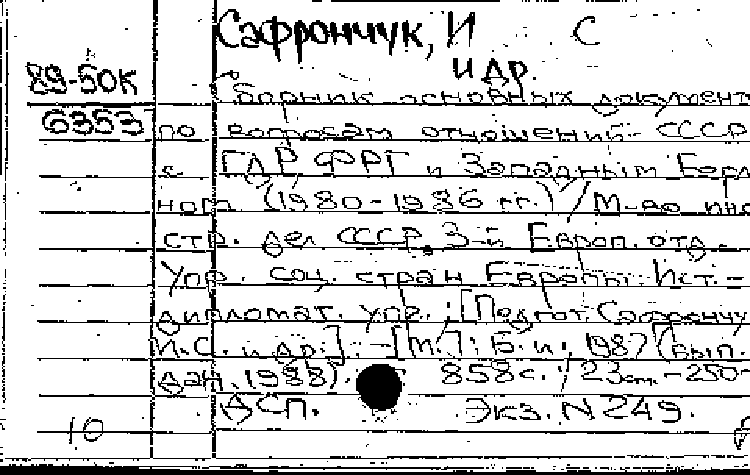 Сафрончук, И С
и др.
89-50К
Сборник основных документ
6353 по вопросам отношений СССР
с ГДР ФРГ и Западным Берл
ном (1980-1986 гг.) / М-во ино
стр. дел СССР, 3-й Европ. отд.
Упр. соц. стран Европы. Ист.-
дипломат. упр.; [Подгот. Сафрончу
И.С. и др.]. - [М.]: Б. и., 1987 (вып.
дан. 1988). 858 с.; 23 см. - 250-
ДСП. Экз. N 249.
10